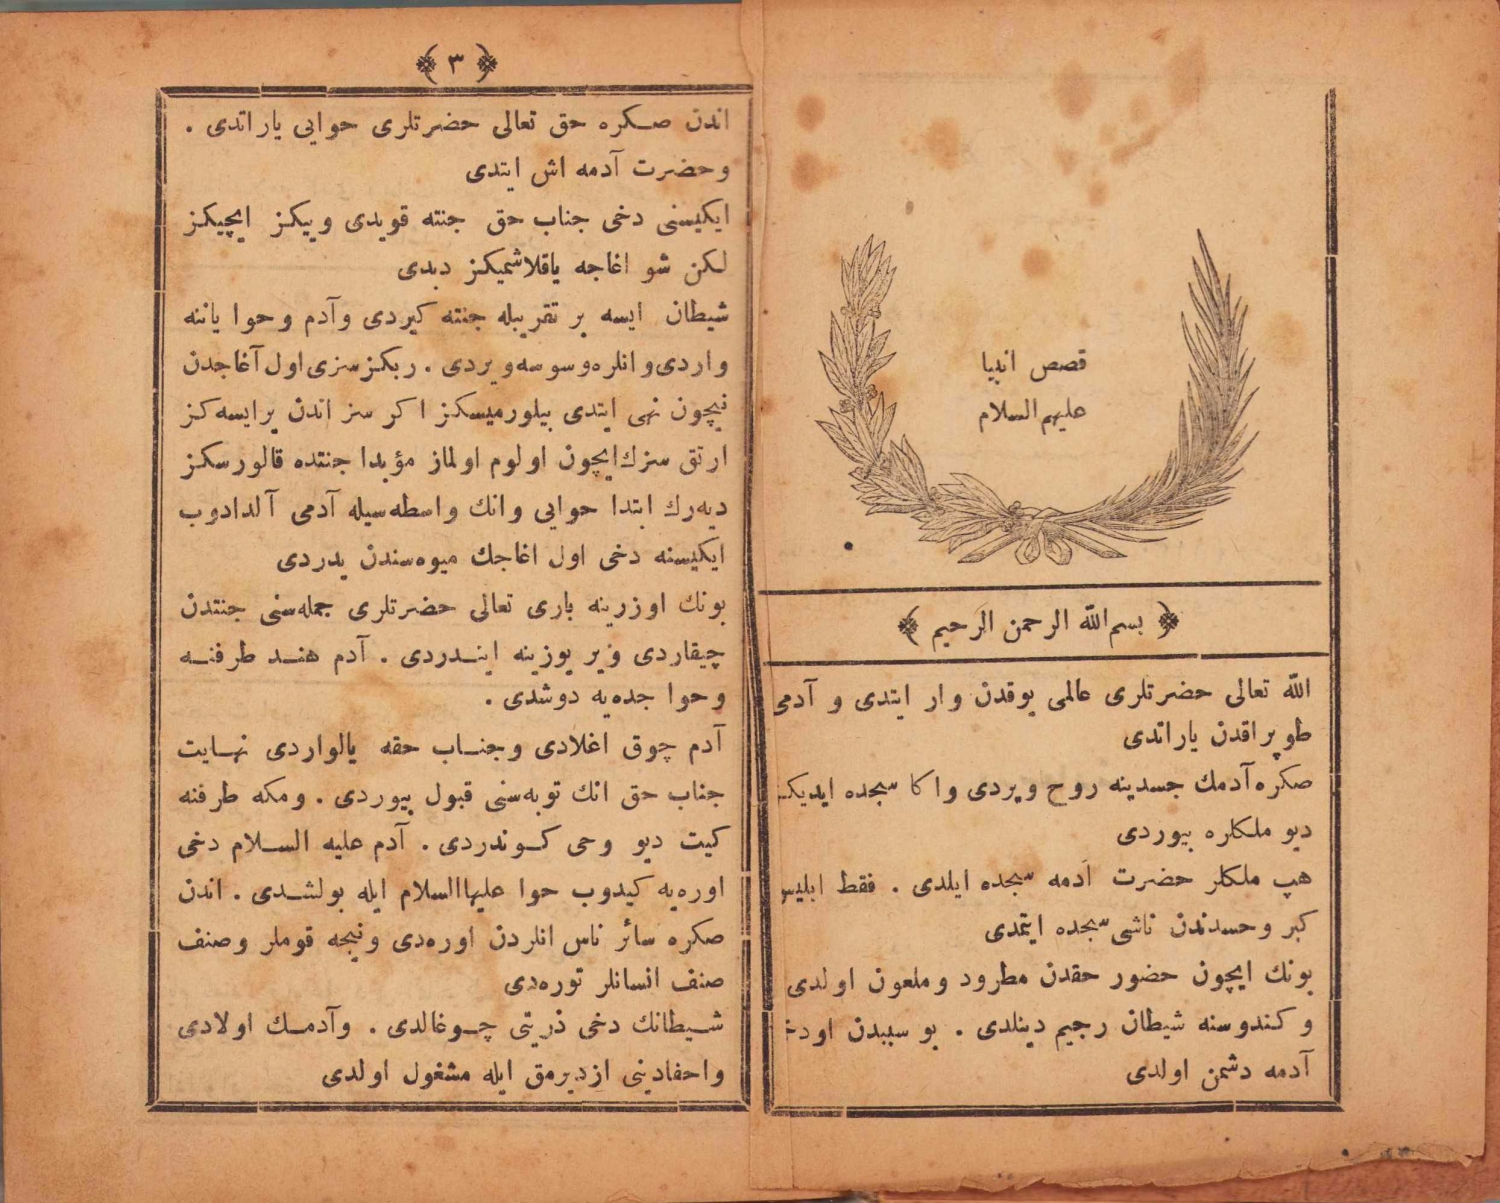 قصص انبیا
علیهم السلام
بسم الله الرحمن الرحیم
الله تعالی حضرتلری عالمی یوقدن وار ایتدی و آدمی
طوپراقدن یاراتدی
صکره آدمك جسدینه روح ویردی واکا سجده ایدیکز
دیو ملکلره بیوردی
هپ ملکلر حضرت آدمه سجده ایلدی . فقط ابلیس
کبر وحسدندن ناشی سجده ایتمدی
بونك ایچون حضور حقدن مطرود وملعون اولدی
وکندوسنه شیطان رجیم دینلدی . بو سببدن اودخی
آدمه دشمن اولدی
٣
اندن صکره حق تعالی حضرتلری حوایی یاراتدی .
وحضرت آدمه اش ایتدی
ایکیسنی دخی جناب حق جنته قویدی وییکز ایچیکز
لکن شو اغاجه یاقلاشمیکز دیدی
شیطان ایسه بر تقریبله جنته کیردی وآدم وحوا یاننه
واردی وانلره وسوسه ویردی . ربکز سزی اول آغاجدن
نیچون نهی ایتدی بیلورمیسکز اکر سز اندن یرایسه کز
ارتق سزك ایچون اولوم اولماز مؤبدا جنتده قالورسکز
دیه رك ابتدا حوایی وانك واسطه سیله آدمی آلدادوب
ایکیسنه دخی اول اغاجك میوه سندن یدردی
بونك اوزرینه باری تعالی حضرتلری جمله سنی جنتدن
چیقاردی ویر یوزینه ایندردی . آدم هند طرفنه
وحوا جده یه دوشدی .
آدم چوق اغلادی وجناب حقه یالواردی نهایت
جناب حق انك توبه سنی قبول بیوردی . ومکه طرفنه
کیت دیو وحی کوندردی . آدم علیه السلام دخی
اوره یه کیدوب حوا علیهاالسلام ایله بولشدی . اندن
صکره سائر ناس انلردن اوره دی ونیجه قوملر وصنف
صنف انسانلر توره دی
شیطانك دخی ذریتی چوغالدی . وآدمك اولادی
واحفادینی ازدیرمق ایله مشغول اولدی